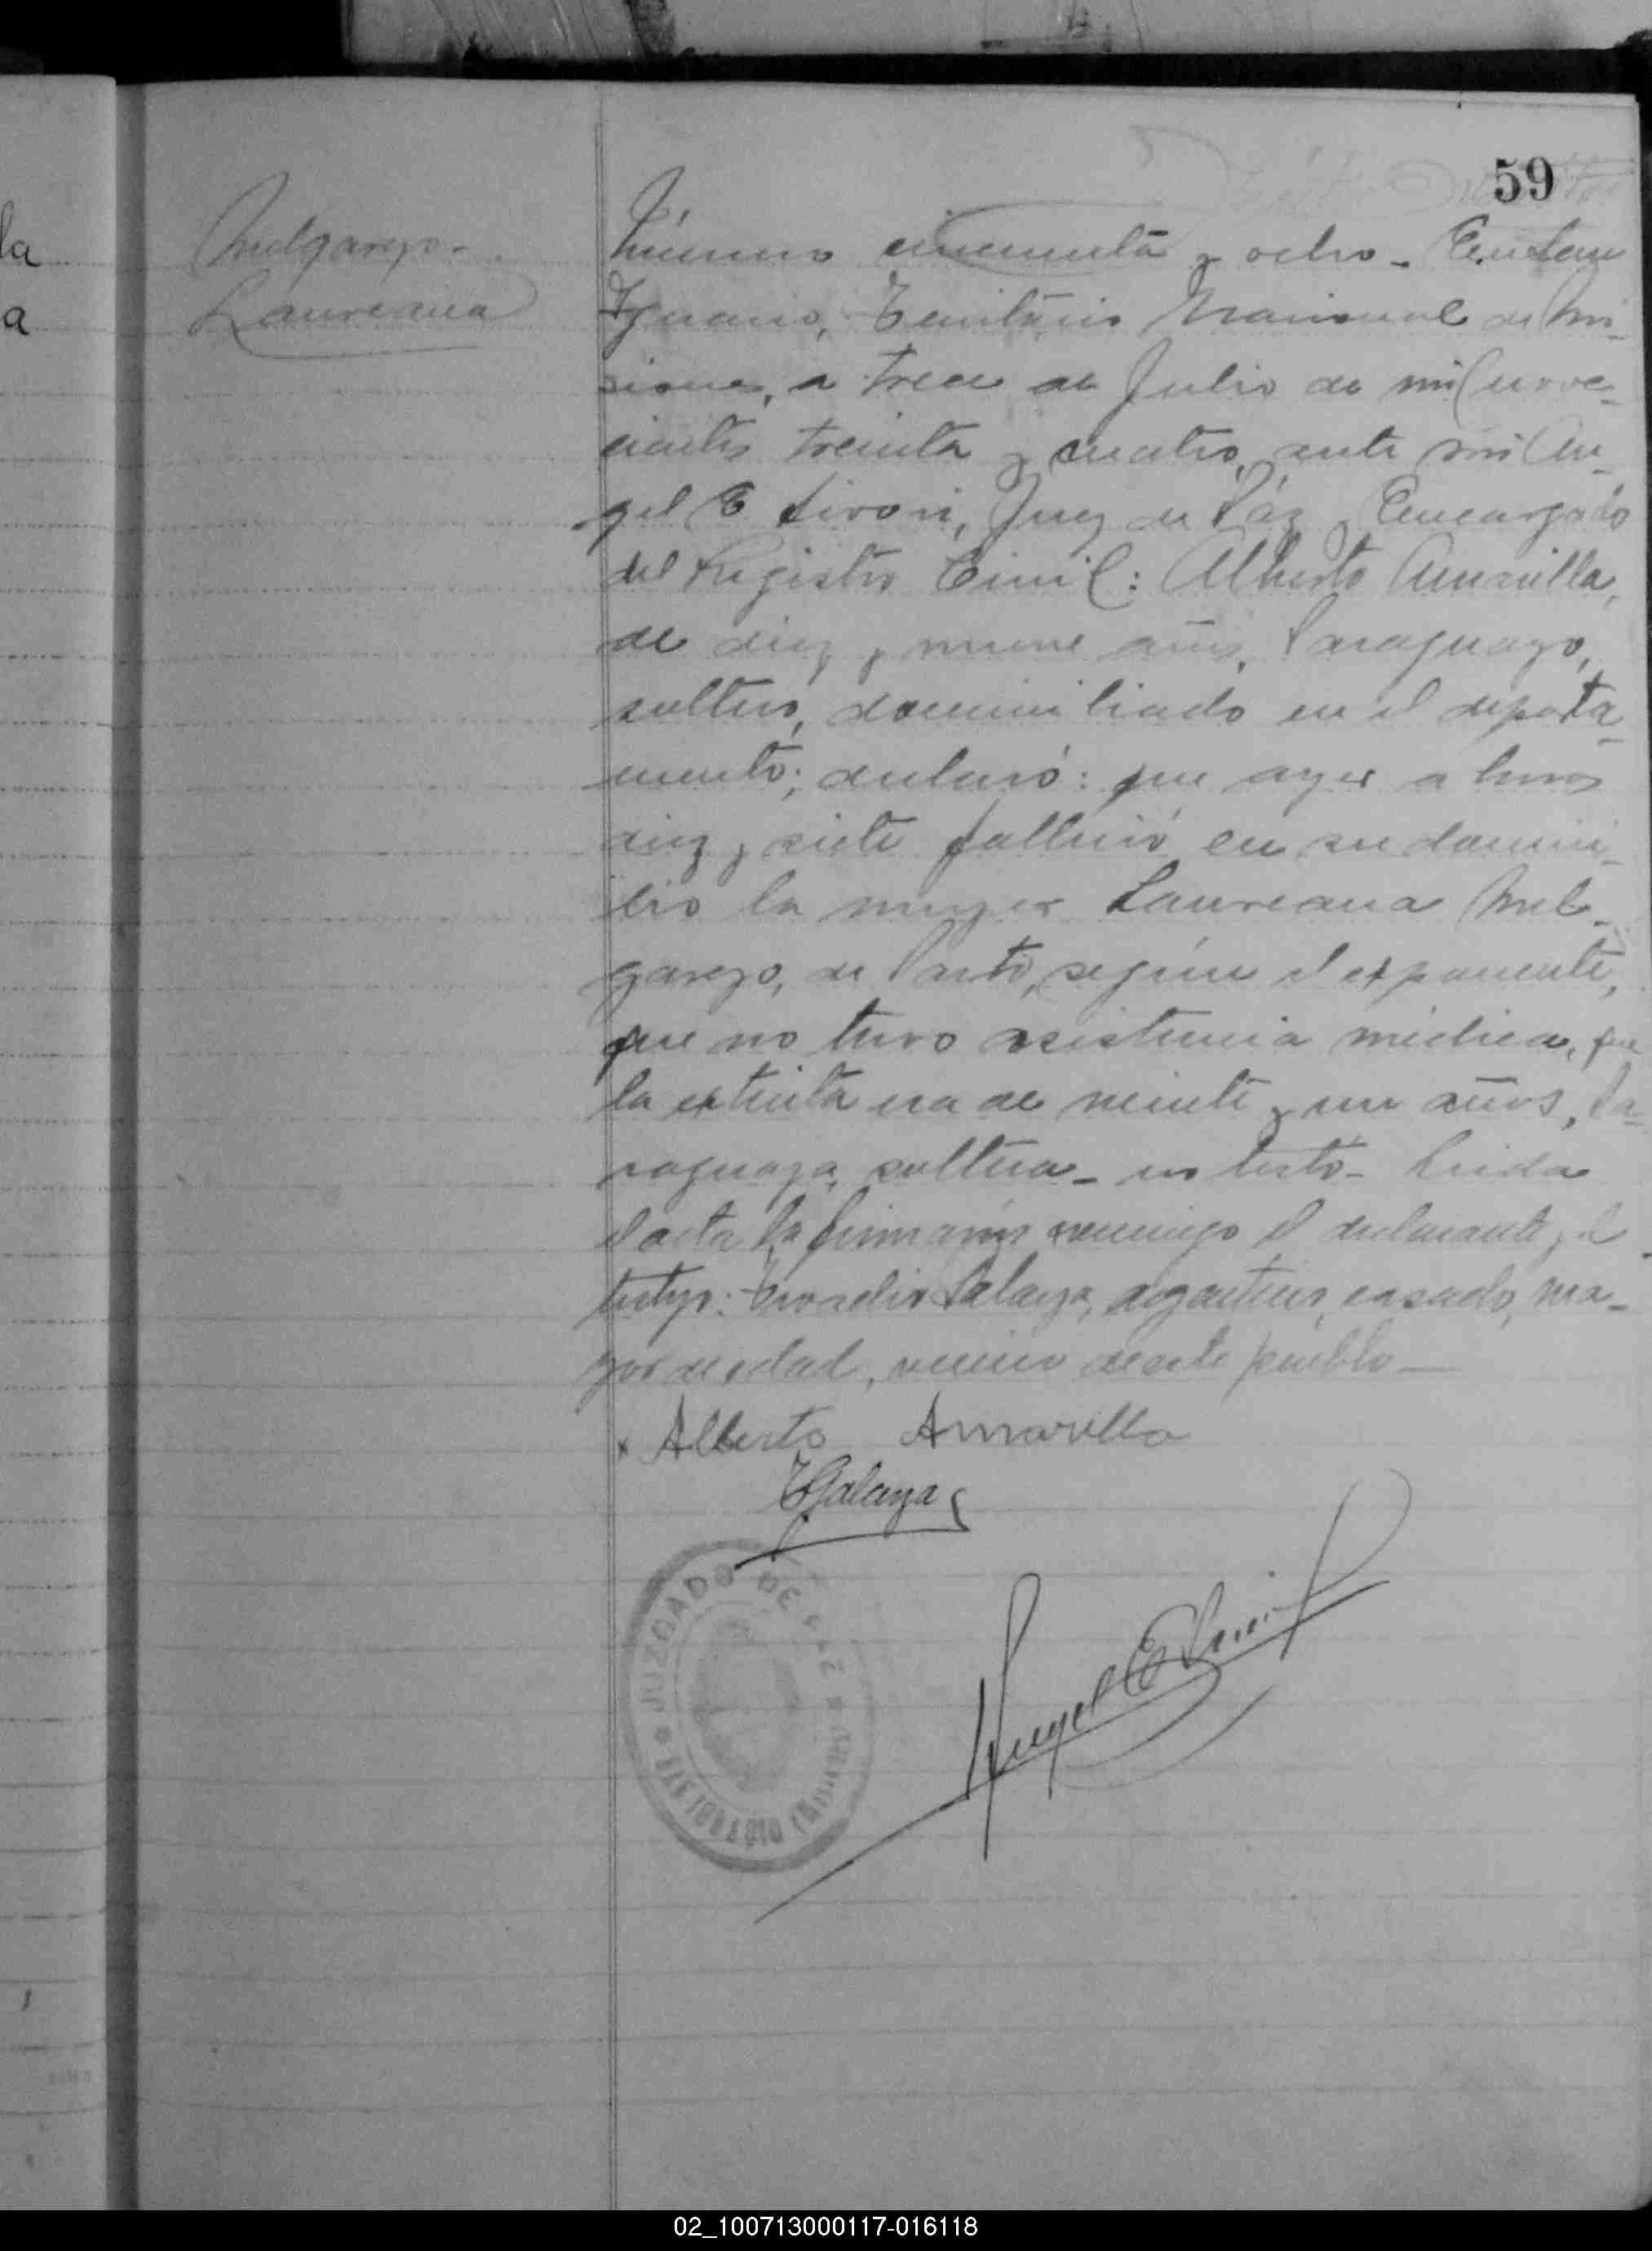 la
a
59
Melgarejo-
Laureana
Número cincuenta y ocho- En San
Ignacio, Territorio Nacional de Mi-
siones, a trece de Julio de mil nove-
cientos treinta y cuatro, ante mi An-
gel E Sironi, Juez de Páz y Encargado
del Registro Civil: Alberto Amarilla,
de diez y nueve años, Paraguayo,
soltero, domiciliado en el departa-
mento; declaró: que ayer a horas
diez y siete falleció en su domici-
lio la mujer Laureana Mel-
garejo, de Parto, según el exponente,
que no tuvo asistencia médica, que
la extinta era de veinte y un años, Pa-
raguaya, soltera- no testó- Leida
el acta la firmaron conmigo el declarante y el
testigo: Galaya, argentino, casado, ma-
yor de edad, vecino de este pueblo-
x Alberto Amarilla
Galaya
Angel E Sironi
JUZGADO DE PAZ
SAN IGNACIO (MISIONES)
02_100713000117-016118